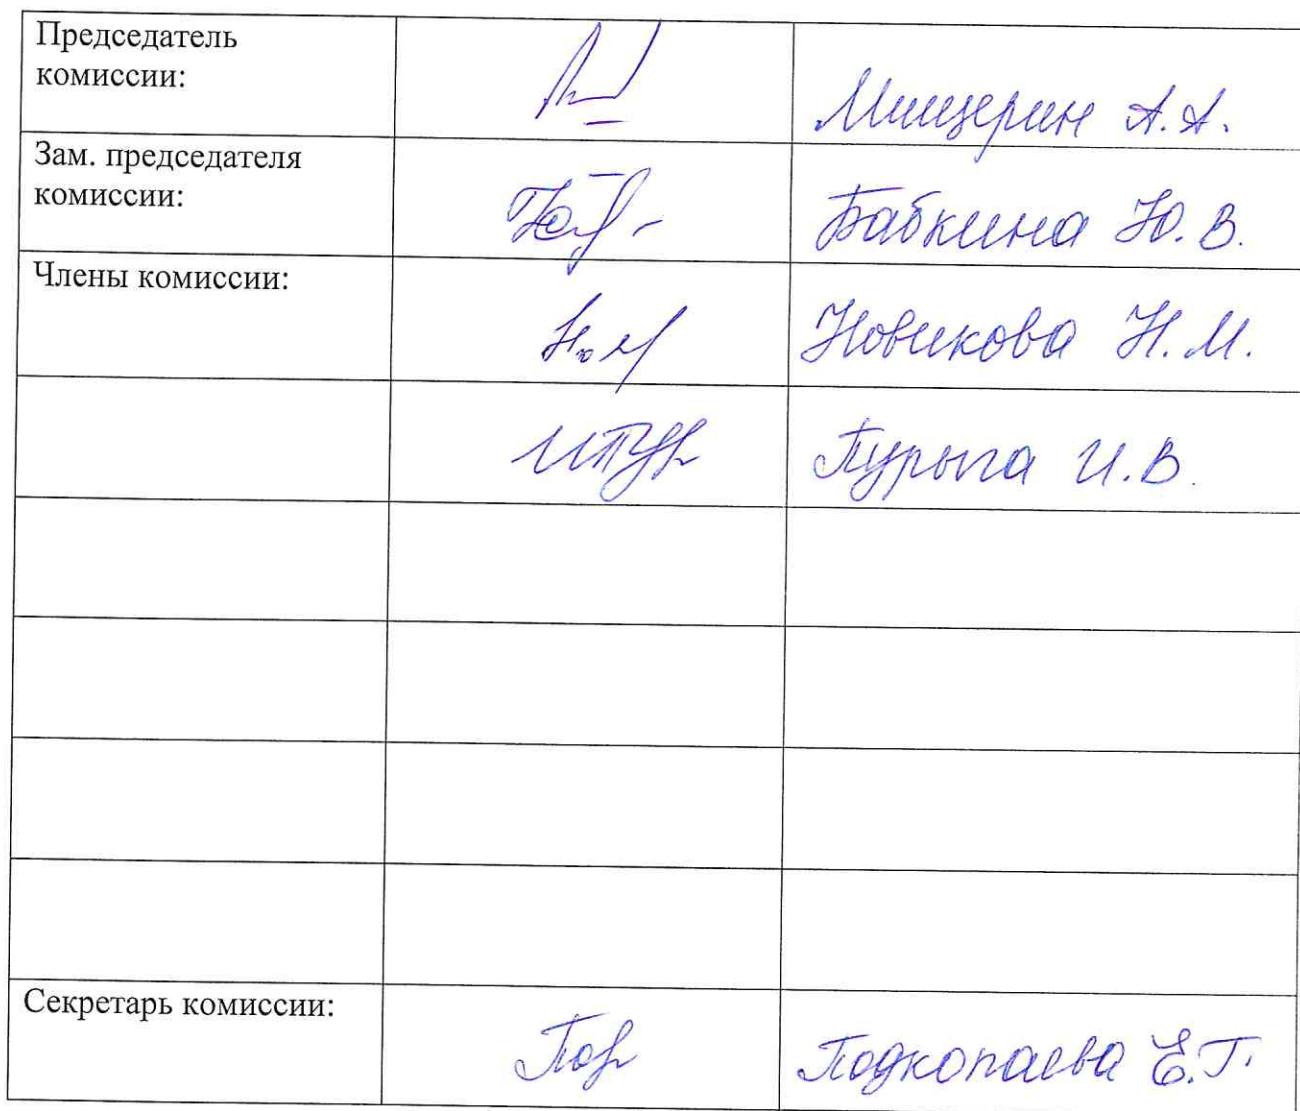 Председатель
комиссии:
Мищерин А.А.
Зам. председателя
комиссии:
Бабкина Ю.В.
Члены комиссии:
Новикова Н.М.
Пурыга И.В.
Секретарь комиссии:
Подкопаева Е.Г.